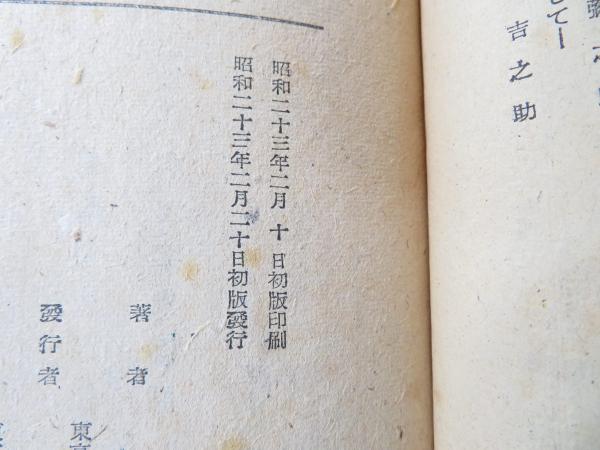 して—
吉之助
昭和二十三年二月十日初版印刷
昭和二十三年二月二十日初版發行
著者
發行者
東